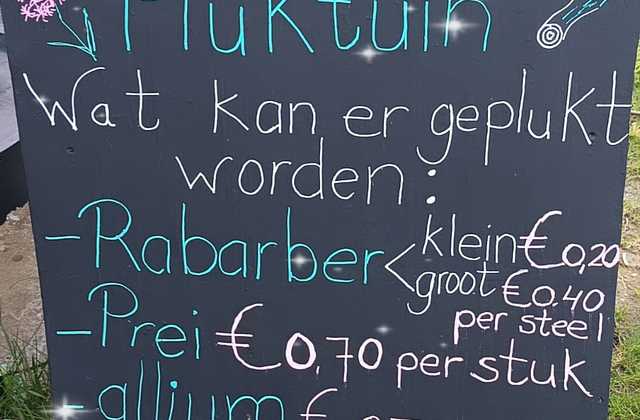 Pluktuin
Wat kan er geplukt
worden:
- Rabarber < klein €0,20
groot €0.40
per steel
- Prei €0,70 per stuk
- allium €